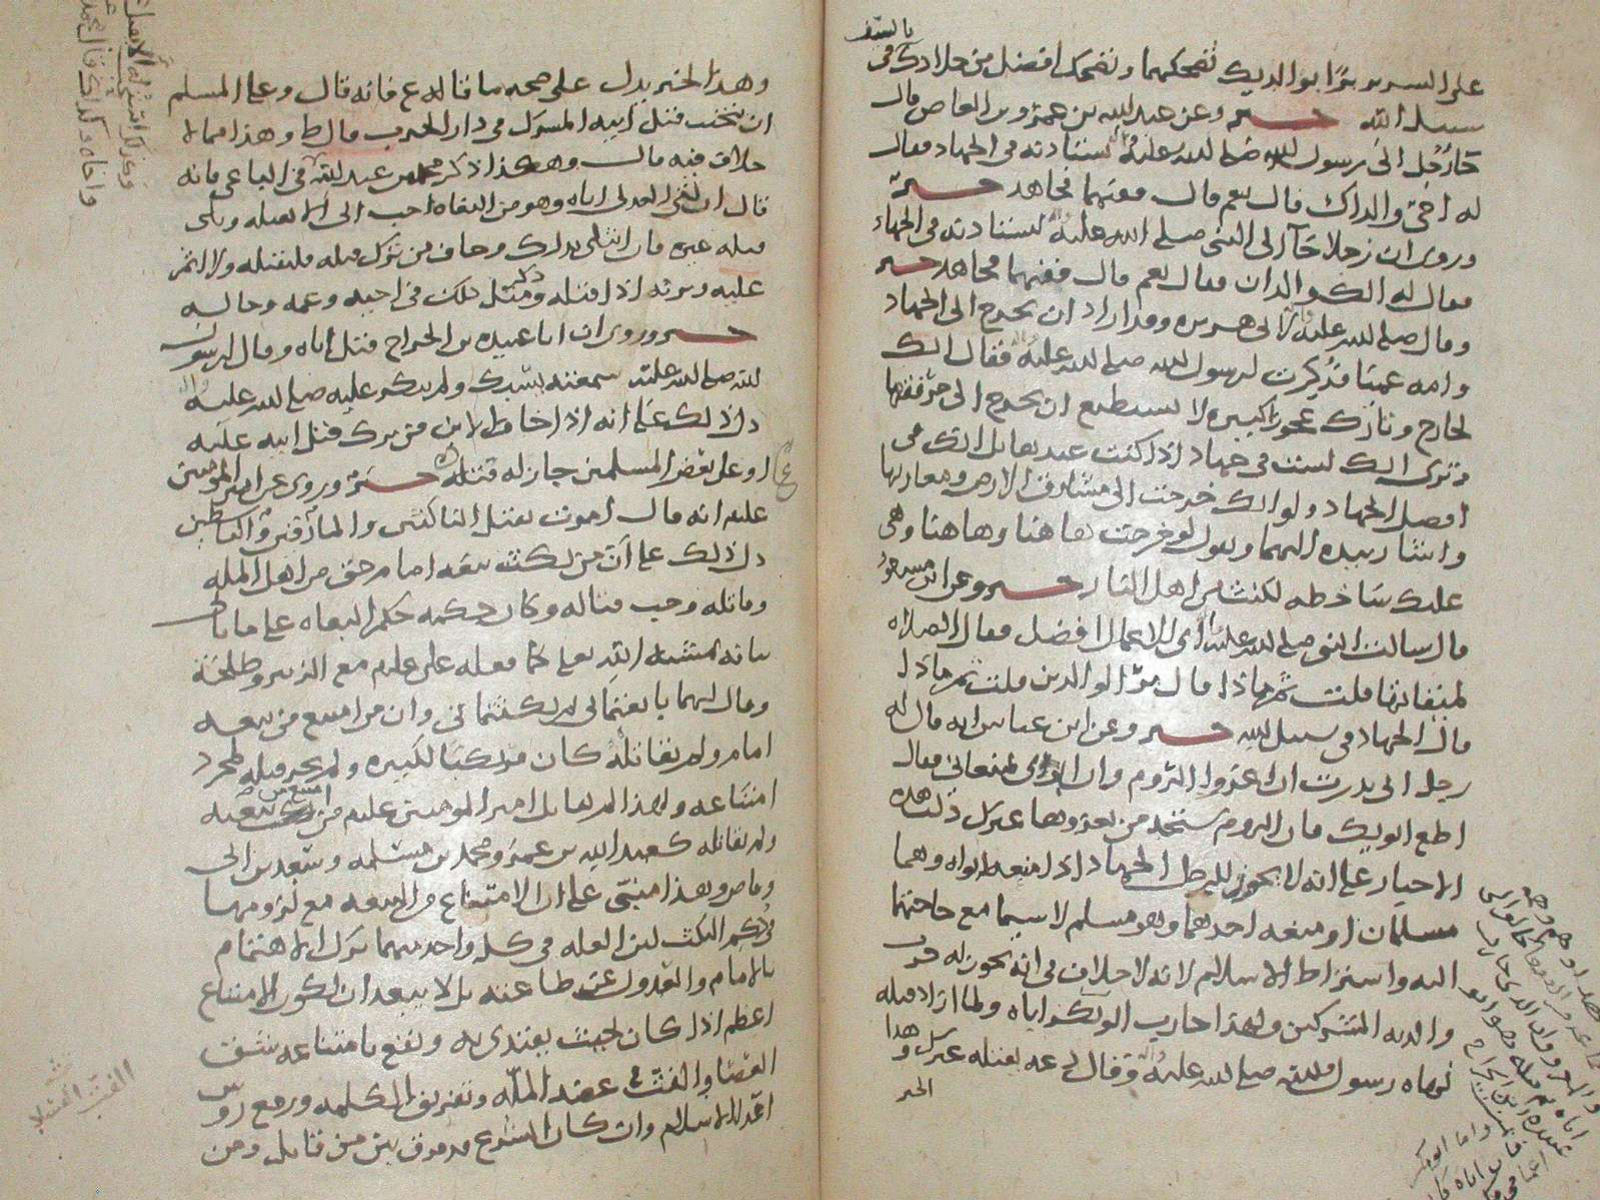 بالسيف
على السرير برًا بوالديك تضحكهما وتضحك افضل من جلادك في
سبيل الله خبر وعن عبدالله بن عمرو بن العاص قال
جآ رجل الى رسول الله صلى الله عليه وآله يستاذنه في الجهاد فقال
له احيّ والداك قال نعم قال ففيهما فجاهد خبر
وروي ان رجلا جآ الى النبي صلى الله عليه وآله ليستاذنه في الجهاد
فقال له الك والدان فقال نعم قال ففيهما فجاهد خبر
وقال صلى الله عليه وآله لابي هريره وقد اراد ان يخرج الى الجهاد
وامه عميا فذكرت لرسول الله صلى الله عليه وآله فقال انك
لخارج وتارك عجوزا كبيره لا تستطيع ان تخرج الى مرفقها
وترى انك لست في جهاد اذا كنت عندها بل انك في
افضل الجهاد ولو انك خرجت الى مشارق الارض ومغاربها
واشار بيده اليهما ويقول لو خرجت هاهنا وهاهنا وهي
عليك ساخطه لكنت من اهل النار خبر وعن ابن مسعود
قال سالت النبي صلى الله عليه وآله اي الاعمال افضل فقال الصلاه
لميقاتها قلت ثم ماذا قال بر الوالدين قلت ثم ماذا
قال الجهاد في سبيل الله خبر وعن ابن عباس انه قال له
رجل اني نذرت ان اغزوا الروم وان ابوي يمنعاني فقال
اطع ابويك فان الروم ستجد من يغزوها غيرك دلت هذه
الاخبار على انه لا يجوز للرجل الجهاد اذا منعه ابواه وهما
مسلمان او منعه احدهما وهو مسلم لا سيما مع حاجتهما
اليه واشتراط الاسلام لانه لا خلاف في انه يجوز له حرب
والديه المشركين ولهذا حارب ابو بكر اباه ولما اراد قتله
نهاه رسول الله صلى الله عليه وآله وقال دعه يقتله غيرك وهذا
الخبر
وهذا الخبر يدل على صحه ما قاله ع فانه قال وعلى المسلم
ان يتجنب قتل ابيه المشرك في دار الحرب قال ط وهذا مما لا
خلاف فيه قال وهكذا ذكر محمد بن عبدالله في الباغي فانه
قال ان لقي العدلي اباه وهو من البغاه احب الى الا يقتله ويلي
قتله غيره فان ابتلي بذلك وخاف من ترك قتله فليقتله ولا اثم
عليه ويرثه اذا قتله وذكر مثل ذلك في اخيه وعمه وخاله
خبر وروي ان ابا عبيده بن الجراح قتل اباه وقال لرسول
الله صلى الله عليه سمعته يسبك ولم ينكر عليه صلى الله عليه وآله
دل ذلك على انه اذا خاف الابن من ترك قتل ابيه عليه
او على بعض المسلمين جاز له قتله خبر وروي عن امير المومنين
عليه انه قال امرت بقتل الناكثين والمارقين والقاسطين
دل ذلك على ان من نكث بيعه امام حق من اهل المله
وقاتله وجب قتاله وكان حكمه حكم البغاه على ما ياتي
بيانه بمشيه الله تعلى كما فعله علي عليلم مع الزبير وطلحة
وقال لهما بايعتماني ثم نكثتماني وان من امتنع من بيعه
امام ولم يقاتله كان مرتكبا لكبيره ولم يجز قتله لمجرد
امتناعه ولهذا لم يقاتل امير المومنين عليلم من امتنع من بيعته
ولم يقاتله كعبد الله بن عمر ومحمد بن مسلمه وسعد بن ابي
وقاص وهذا مبني على ان الامتناع من البيعه مع لزومها
في حكم النكث لان العله في كل واحد منهما ترك الاهتمام
بالامام والعدول عن طاعته بل لا يبعد ان يكون الامتناع
اعظم اذا كان بحيث يقتدى به ويقع بامتناعه شق
العصا والفت في عضد المله وتفريق الكلمه ورفع روس
اعدا الاسلام وان كان الشرع قد فرق بين من قاتل ومن